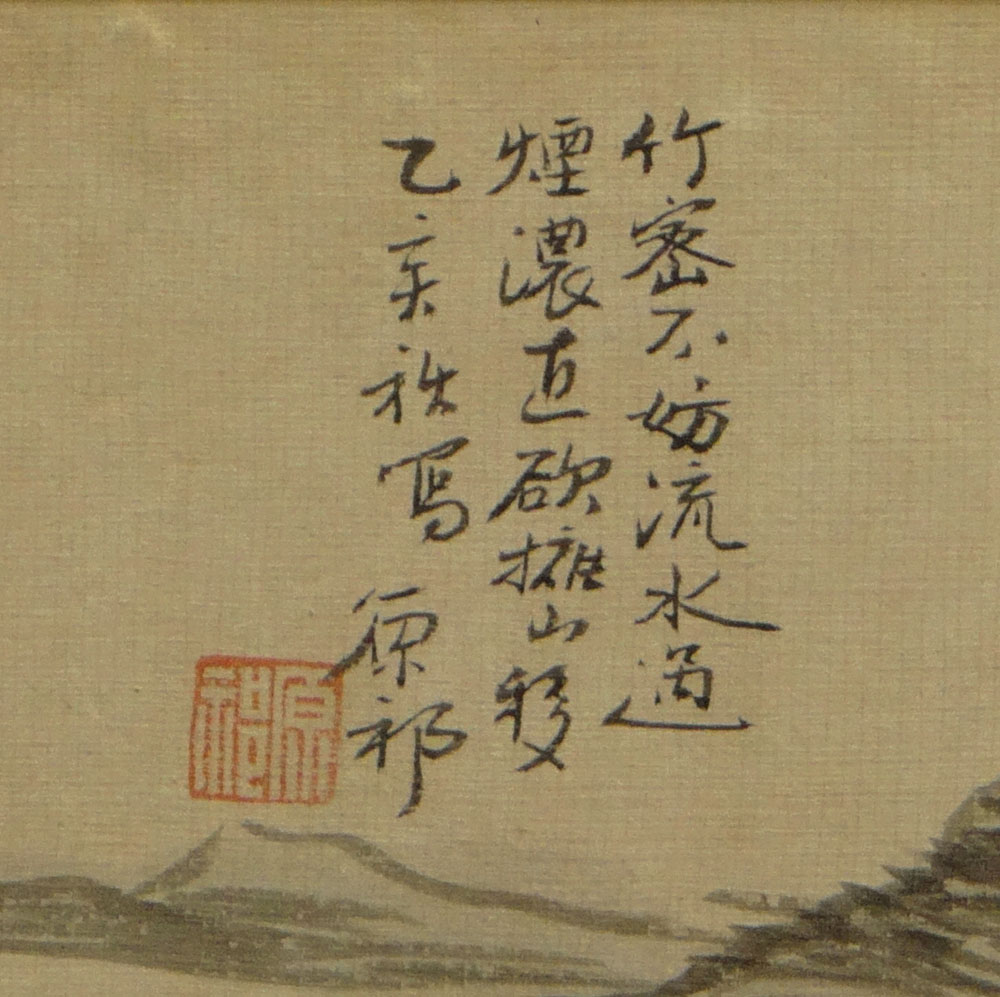 竹密不妨流水過
煙濃直欲擁山移
乙亥秋写 原祁
原祁